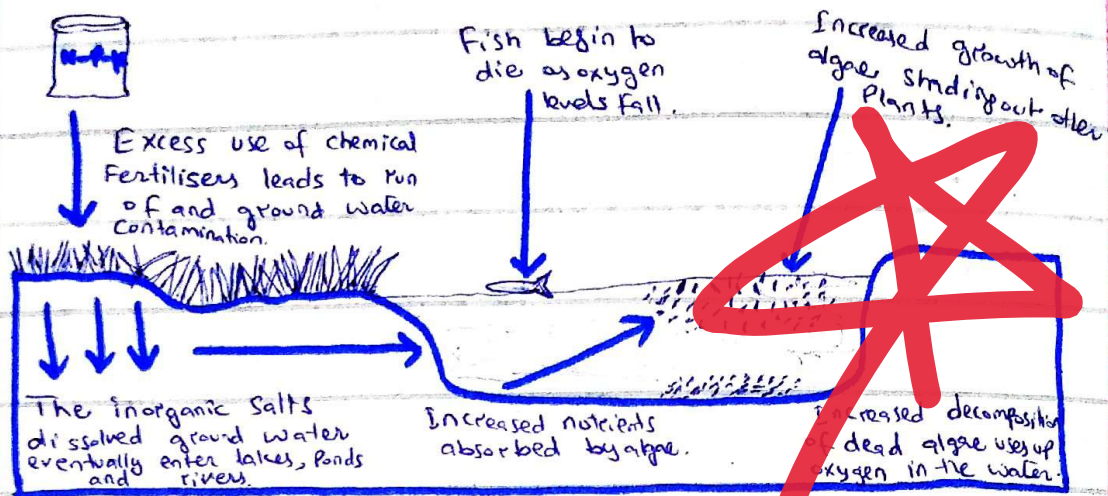 N-P-K
Excess use of chemical
Fertilisers leads to run
of and ground water
contamination.
Fish begin to
die as oxygen
levels fall.
Increased growth of
algae, shading out other
Plants.
The inorganic salts
dissolved ground water
eventually enter lakes, Ponds
and rivers.
Increased nutrients
absorbed by algae.
Increased decomposition
of dead algae uses up
oxygen in the water.